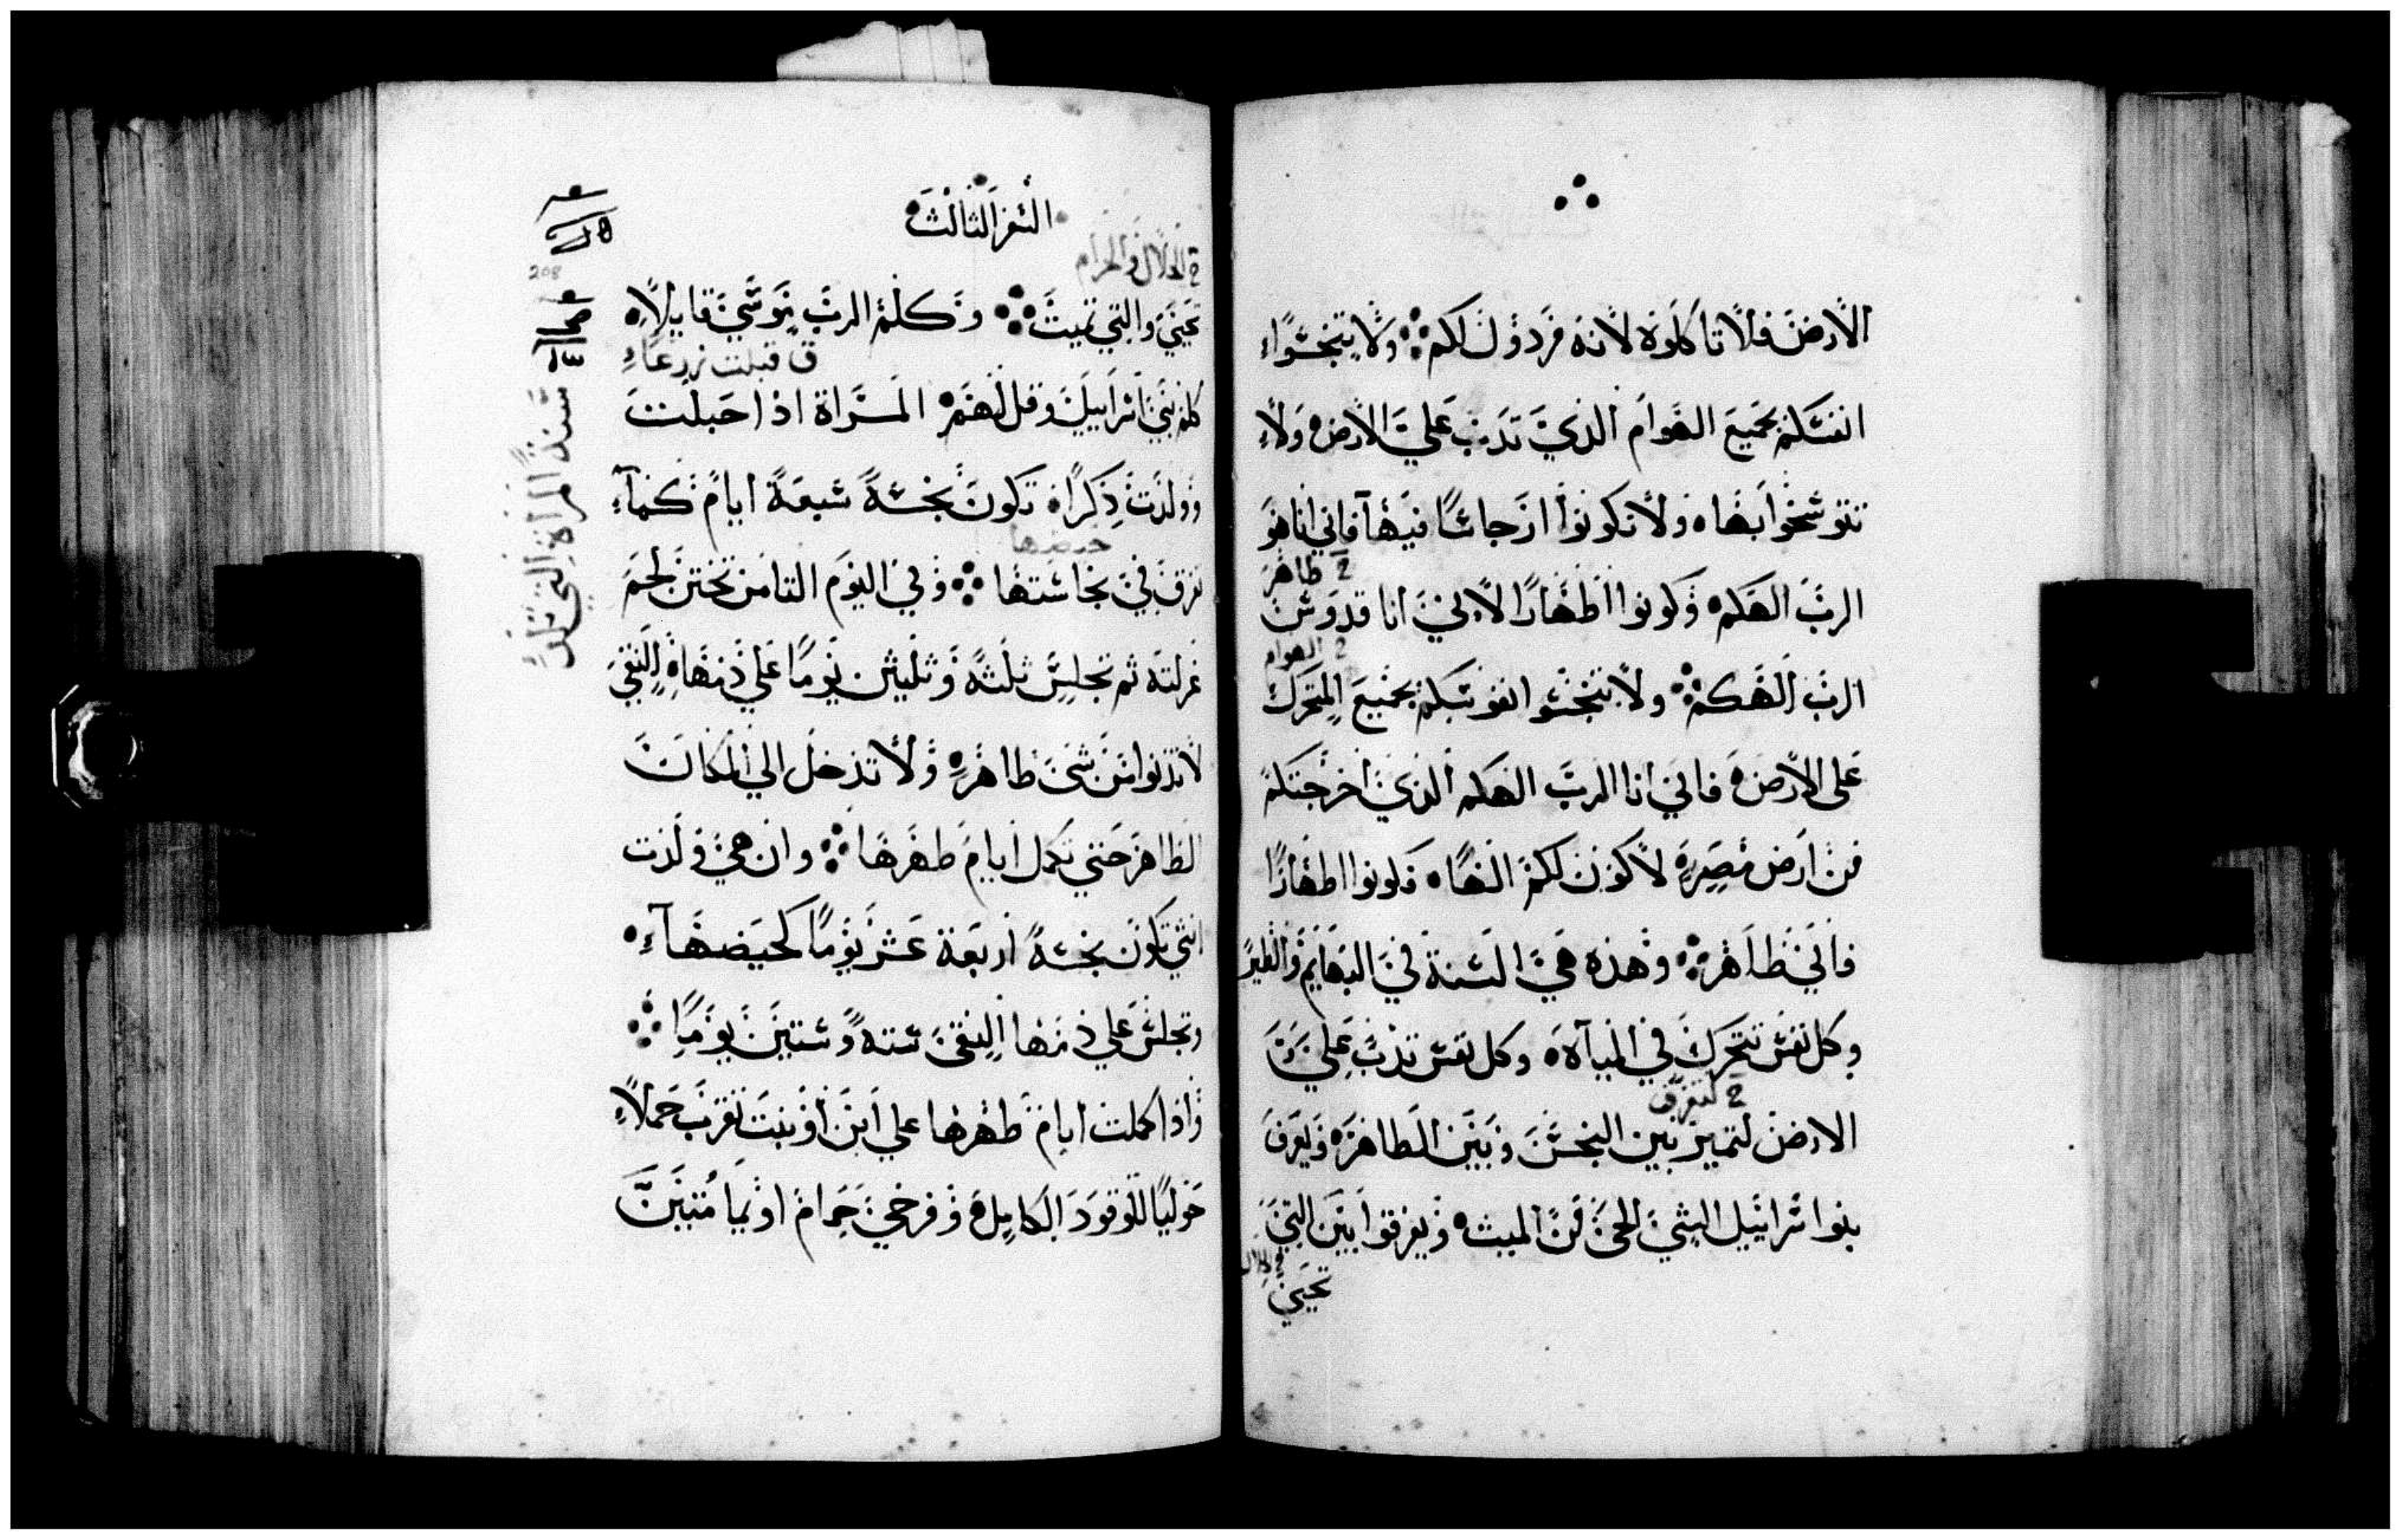 الارض فلا تاكلوه لانه مرذول لكم ولا تنجسوا
انفسكم بجميع الهوام الذي تدب علي الارض ولا
تتوشحوا بها ولا تكونوا انجاسًا فيها فاني انا هو
خ طاهر
الرب الهكم وكونوا اطهارًا لانني انا قدوس
خ الهوام
الرب الهكم ولا تنجسوا انفوسكم بجميع المتحرك
على الارض فاني انا الرب الهكم الذي اخرجتكم
من ارض مصر لاكون لكم الهًا فكونوا اطهارًا
فاني طاهر وهذه هي السنة في البهايم والطير
وكل نفس تتحرك في المياه وكل نفس تدب علي
خ لتفرق
الارض لتميز بين النجس وبين الطاهر ويعرف
بنوا سراييل الشي الحي من الميت ويفرقوا بين التي
تحيي
السفر الثالث
خ الحلال والحرام
تحيي والتي تميت وكلم الرب موسي قايلاً
ق قبلت زرعا
كلم بني اسراييل وقل لهم المراة اذا حبلت
وولدت ذكرًا تكون نجسة سبعة ايام كما
حيضها
تفرق في نجاستها وفي اليوم الثامن تختن لحم
غرلته ثم تجلس ثلثة وثلثين يومًا علي دمها النقي
لا تدنوا من شي طاهر ولا تدخل الي المكان
الطاهر حتي تكمل ايام طهرها وان هي ولدت
انثي تكون نجسة اربعة عشر يومًا كحيضها
وتجلس علي دمها النقي ستة وستين يومًا
واذا كملت ايام طهرها علي ابن او بنت تقرب حملاً
حوليًا للوقود الكامل وفرخي حمام او يمامتين
208
سنة المراة التي تلد